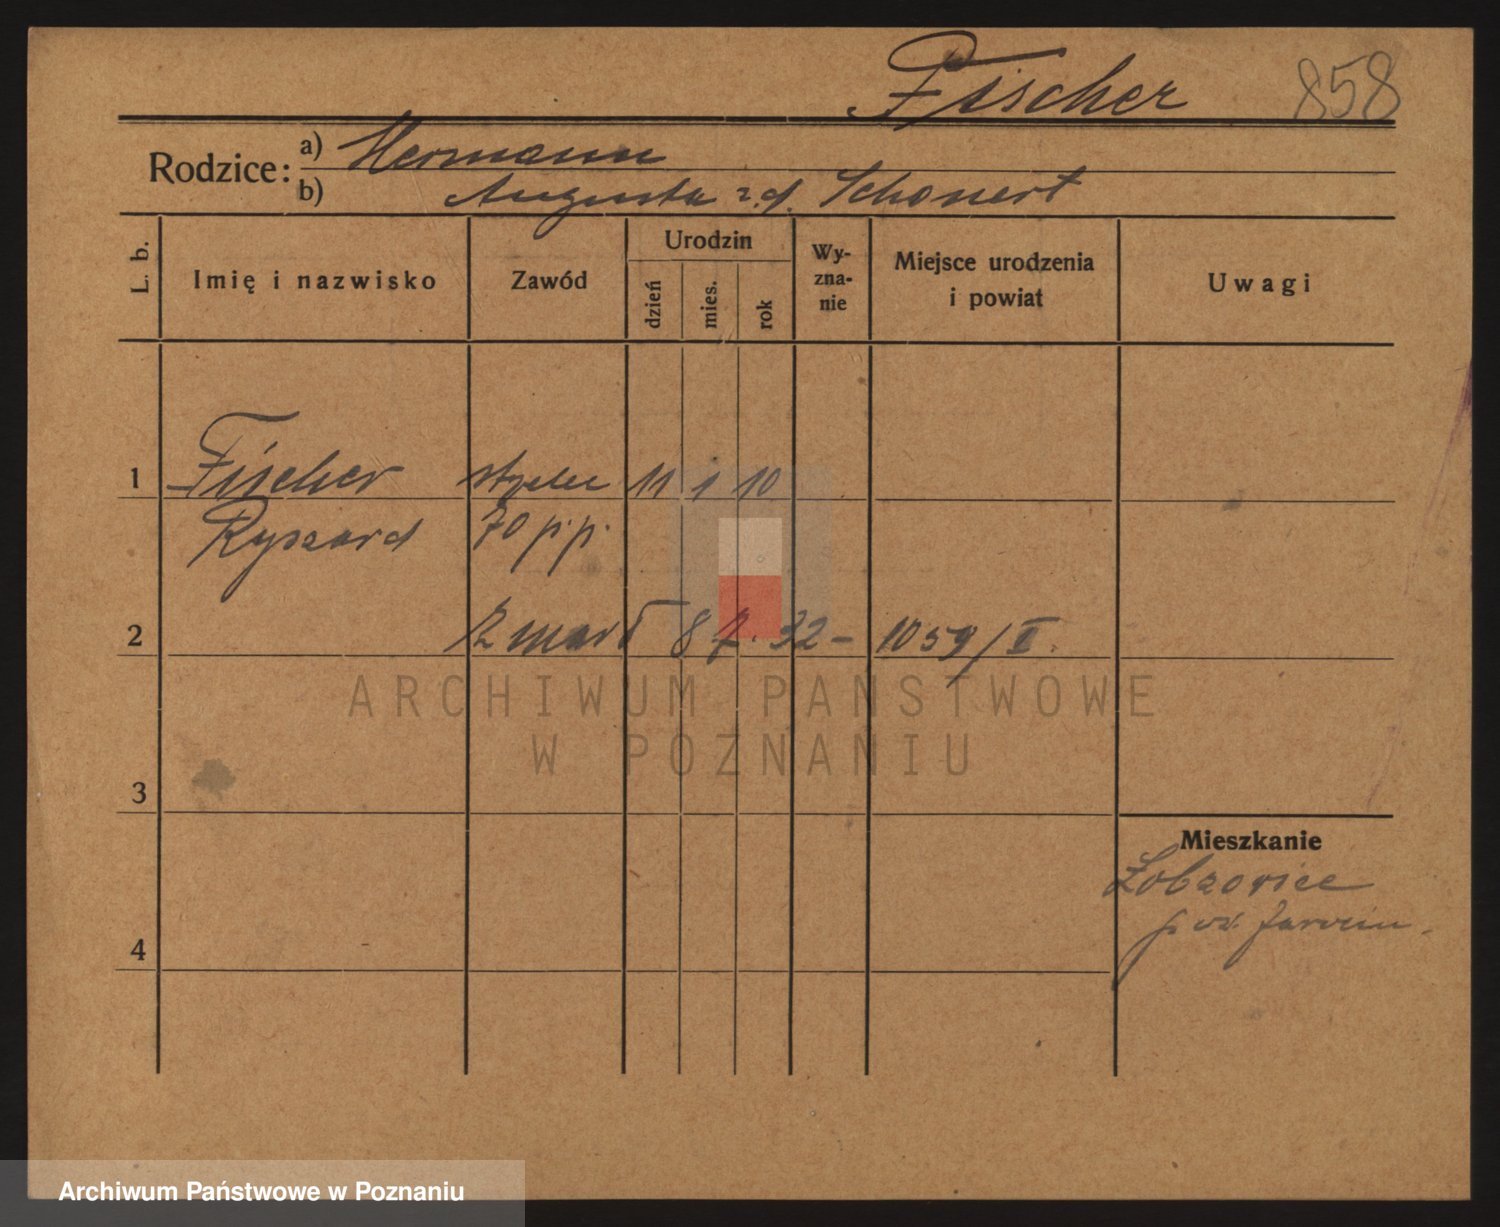 Fischer 858
Rodzice: a) Hermann
b) Augusta z.d. Schonert
L. b. Imię i nazwisko Zawód Urodzin dzień mies. rok Wy-zna-nie Miejsce urodzenia i powiat Uwagi
1 Fischer strzelec 11 1 10
Ryszard 70 p.p.
2 Zmarł 8 7. 32 - 1059/II.
ARCHIWUM PAŃSTWOWE
W POZNANIU
3
Mieszkanie
Łobzowice
pow. Jarocin
4
Archiwum Państwowe w Poznaniu